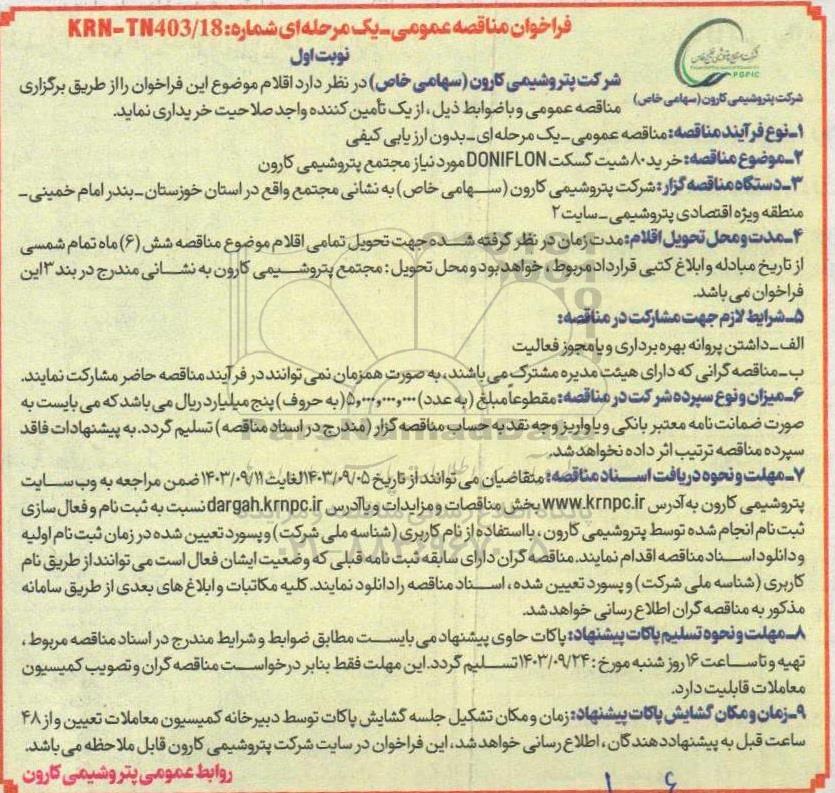 فراخوان مناقصه عمومی_یک مرحله‌ای شماره: KRN-TN403/18
نوبت اول
PGPIC
شرکت پتروشیمی کارون (سهامی خاص)
شرکت پتروشیمی کارون (سهامی خاص) در نظر دارد اقلام موضوع این فراخوان را از طریق برگزاری
مناقصه عمومی و با ضوابط ذیل، از یک تأمین کننده واجد صلاحیت خریداری نماید.
۱_نوع فرآیند مناقصه: مناقصه عمومی_یک مرحله‌ای_بدون ارزیابی کیفی
۲_موضوع مناقصه: خرید ۸۰ شیت گسکت DONIFLON مورد نیاز مجتمع پتروشیمی کارون
۳_دستگاه مناقصه گزار: شرکت پتروشیمی کارون (سهامی خاص) به نشانی مجتمع واقع در استان خوزستان_بندر امام خمینی_
منطقه ویژه اقتصادی پتروشیمی_سایت ۲
۴_مدت و محل تحویل اقلام: مدت زمان در نظر گرفته شده جهت تحویل تمامی اقلام موضوع مناقصه شش (۶) ماه تمام شمسی
از تاریخ مبادله و ابلاغ کتبی قرارداد مربوط، خواهد بود و محل تحویل: مجتمع پتروشیمی کارون به نشانی مندرج در بند ۳ این
فراخوان می باشد.
۵_شرایط لازم جهت مشارکت در مناقصه:
الف_داشتن پروانه بهره برداری و یا مجوز فعالیت
ب_مناقصه گرانی که دارای هیئت مدیره مشترک می باشند، به صورت همزمان نمی توانند در فرآیند مناقصه حاضر مشارکت نمایند.
۶_میزان و نوع سپرده شرکت در مناقصه: مقطوعاً مبلغ (به عدد) ۵,۰۰۰,۰۰۰,۰۰۰ (به حروف) پنج میلیارد ریال می باشد که می بایست به
صورت ضمانت نامه معتبر بانکی و یا واریز وجه نقد به حساب مناقصه گزار (مندرج در اسناد مناقصه) تسلیم گردد. به پیشنهادات فاقد
سپرده مناقصه ترتیب اثر داده نخواهد شد.
۷_مهلت و نحوه دریافت اسناد مناقصه: متقاضیان می توانند از تاریخ ۱۴۰۳/۰۹/۰۵ لغایت ۱۴۰۳/۰۹/۱۱ ضمن مراجعه به وب سایت
پتروشیمی کارون به آدرس www.krnpc.ir بخش مناقصات و مزایدات و یا آدرس dargah.krnpc.ir نسبت به ثبت نام و فعال سازی
ثبت نام انجام شده توسط پتروشیمی کارون، با استفاده از نام کاربری (شناسه ملی شرکت) و پسورد تعیین شده در زمان ثبت نام اولیه
و دانلود اسناد مناقصه اقدام نمایند. مناقصه گران دارای سابقه ثبت نامه قبلی که وضعیت ایشان فعال است می توانند از طریق نام
کاربری (شناسه ملی شرکت) و پسورد تعیین شده، اسناد مناقصه را دانلود نمایند. کلیه مکاتبات و ابلاغ های بعدی از طریق سامانه
مذکور به مناقصه گران اطلاع رسانی خواهد شد.
۸_مهلت و نحوه تسلیم پاکات پیشنهاد: پاکات حاوی پیشنهاد می بایست مطابق ضوابط و شرایط مندرج در اسناد مناقصه مربوط،
تهیه و تا ساعت ۱۶ روز شنبه مورخ: ۱۴۰۳/۰۹/۲۴ تسلیم گردد. این مهلت فقط بنابر درخواست مناقصه گران و تصویب کمیسیون
معاملات قابلیت دارد.
۹_زمان و مکان گشایش پاکات پیشنهاد: زمان و مکان تشکیل جلسه گشایش پاکات توسط دبیرخانه کمیسیون معاملات تعیین و از ۴۸
ساعت قبل به پیشنهاددهندگان، اطلاع رسانی خواهد شد، این فراخوان در سایت شرکت پتروشیمی کارون قابل ملاحظه می باشد.
روابط عمومی پتروشیمی کارون